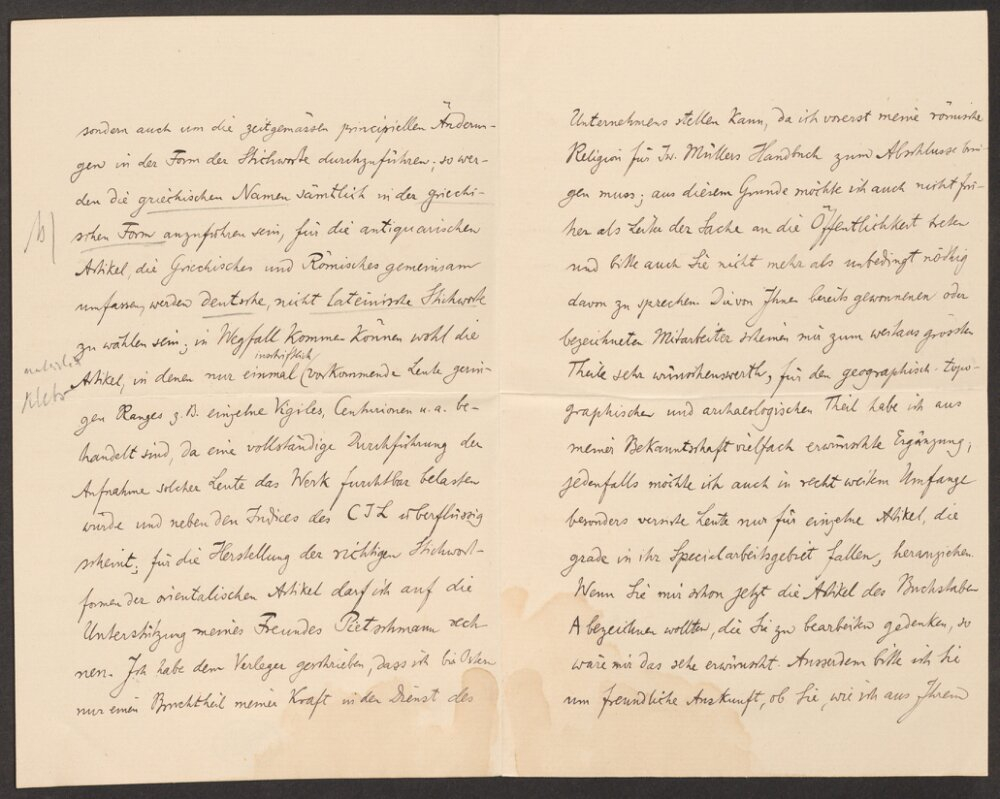 sondern auch um die zeitgemässen principiellen Änderun-
gen in der Form der Stichworte durchzuführen; so wer-
den die griechischen Namen sämtlich in der griechi-
schen Form anzuführen sein, für die antiquarischen
Artikel, die Griechisches und Römisches gemeinsam
umfassen, werden deutsche, nicht lateinische Stichworte
zu wählen sein; in Wegfall kommen können wohl die
inschriftlich
Artikel, in denen nur einmal vorkommende Leute gerin-
gen Ranges z. B. einzelne Vigiles, Centurionen u. a. be-
handelt sind, da eine vollständige Durchführung der
Aufnahme solcher Leute das Werk furchtbar belasten
würde und neben den Indices des CIL überflüssig
scheint; für die Herstellung der richtigen Stichwort-
formen der orientalischen Artikel darf ich auf die
Unterstützung meines Freundes Pietschmann rech-
nen. Ich habe dem Verleger geschrieben, dass ich bis Ostern
nur einen Bruchtheil meiner Kraft in den Dienst des
Unternehmens stellen kann, da ich vorerst meine römische
Religion für Iw. Müllers Handbuch zum Abschlusse brin-
gen muss; aus diesem Grunde möchte ich auch nicht frü-
her als Leiter der Sache an die Öffentlichkeit treten
und bitte auch Sie nicht mehr als unbedingt nöthig
davon zu sprechen. Die von Ihnen bereits gewonnenen oder
bezeichneten Mitarbeiter scheinen mir zum weitaus grössten
Theile sehr wünschenswerth, für den geographisch-topo-
graphischen und archaeologischen Theil habe ich aus
meiner Bekanntschaft vielfach erwünschte Ergänzung;
jedenfalls möchte ich auch in recht weitem Umfange
besonders versirte Leute nur für einzelne Artikel, die
grade in ihr Specialarbeitsgebiet fallen, heranziehen.
Wenn Sie mir schon jetzt die Artikel des Buchstaben
A bezeichnen wollten, die Sie zu bearbeiten gedenken, so
wäre mir das sehr erwünscht. Ausserdem bitte ich Sie
um freundliche Auskunft, ob Sie, wie ich aus Ihrem